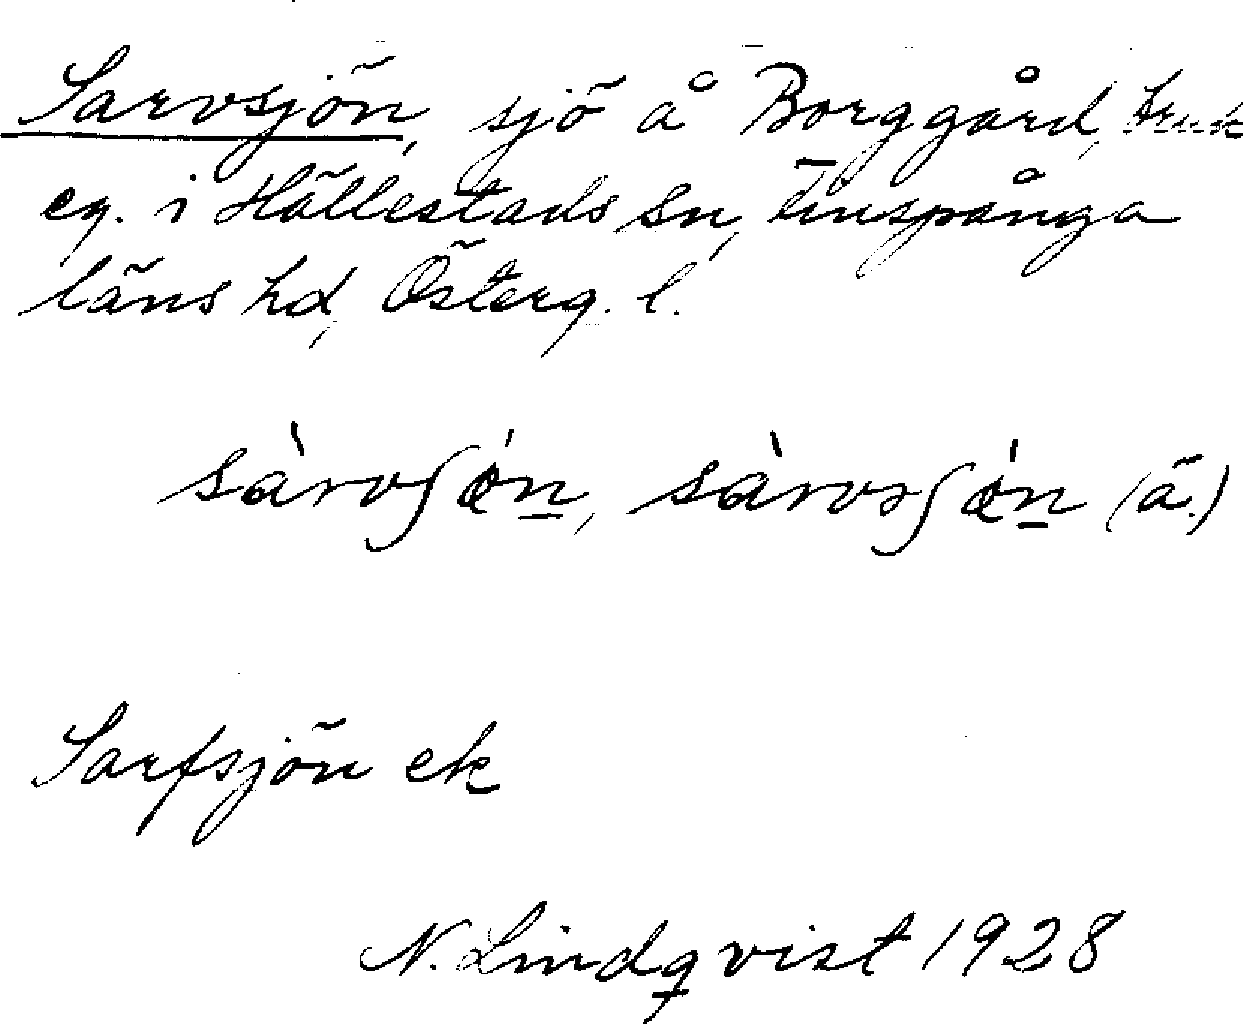 Sarvsjön, sjö å Borggård, bruk
eg. i Hällestads sn, Finspånga
läns hd, Österg. l.
sàrvʃǿn̲, sàrvsʃǿn̲ (ä.)
Sarfsjön ek
N. Lindqvist 1928